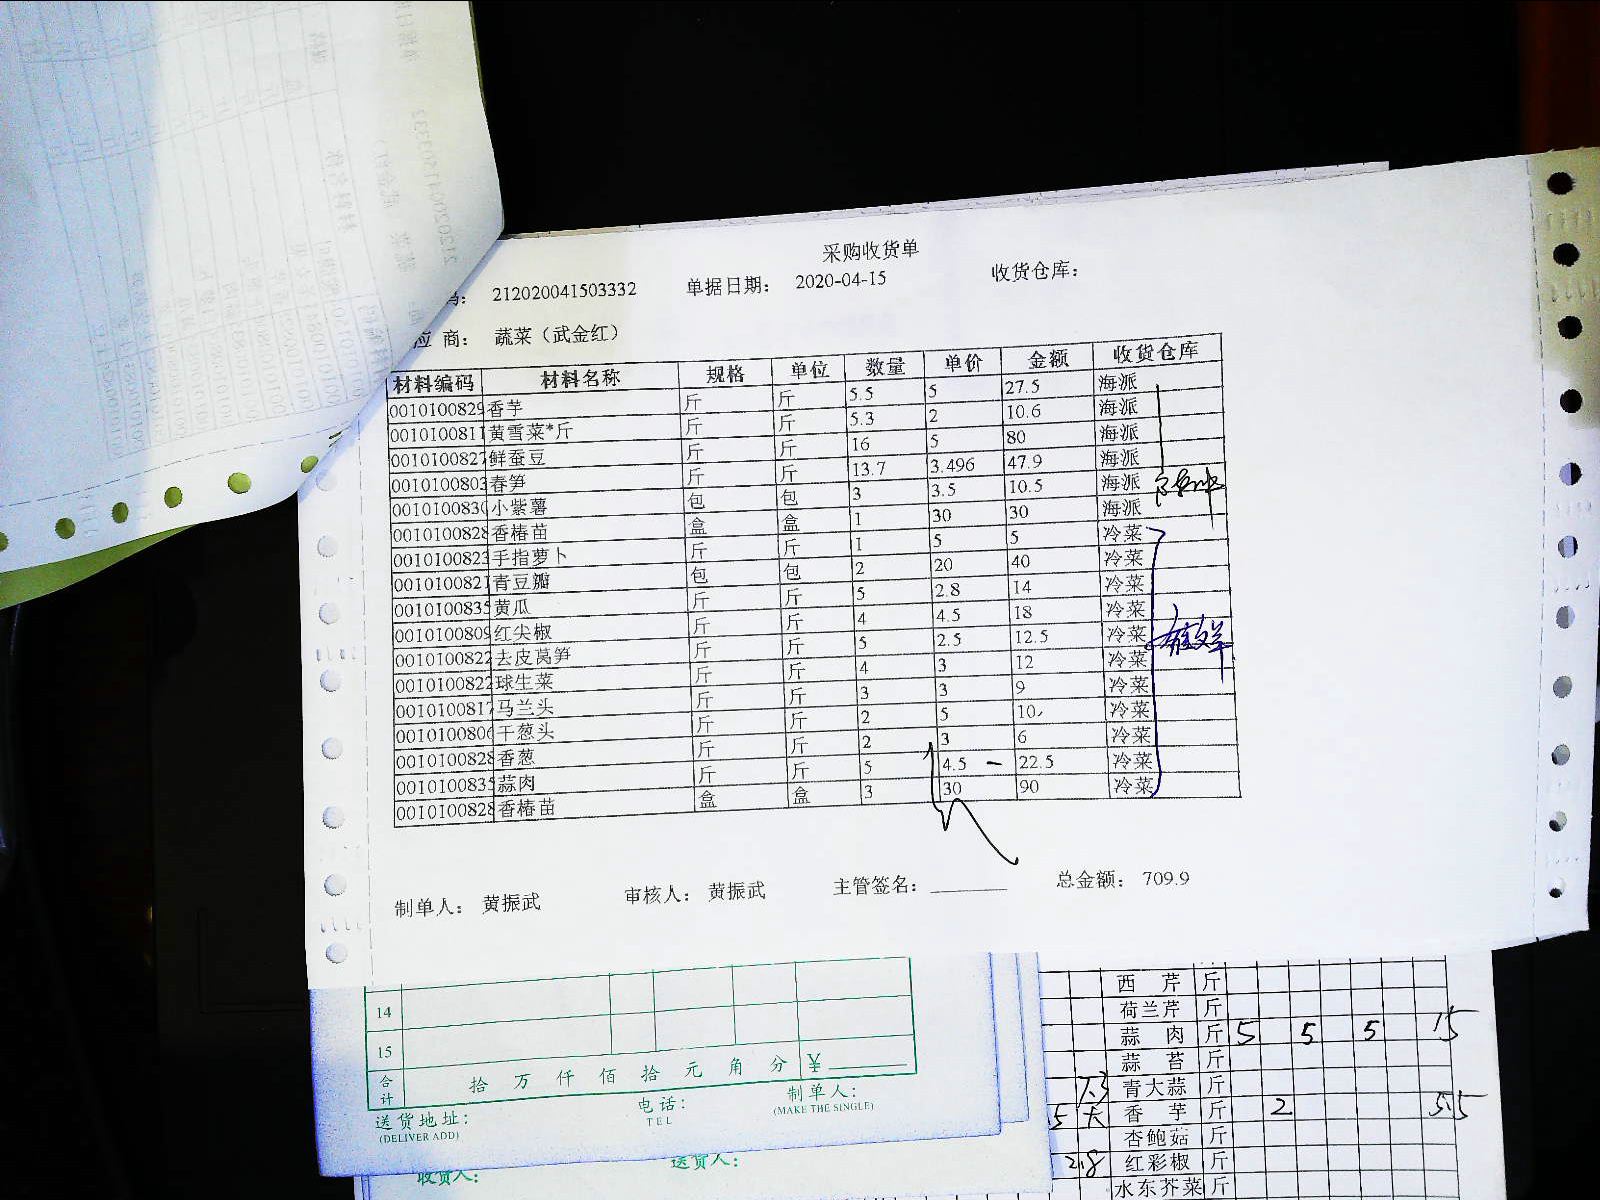 采购收货单
212020041503332 单据日期: 2020-04-15 收货仓库:
商: 蔬菜（武金红）
材料编码 材料名称 规格 单位 数量 单价 金额 收货仓库
0010100829 香芋 斤 斤 5.5 5 27.5 海派
0010100811 黄雪菜*斤 斤 斤 5.3 2 10.6 海派
0010100827 鲜蚕豆 斤 斤 16 5 80 海派
0010100803 春笋 斤 斤 13.7 3.496 47.9 海派
0010100830 小紫薯 包 包 3 3.5 10.5 海派
0010100828 香椿苗 盒 盒 1 30 30 海派
0010100823 手指萝卜 斤 斤 1 5 5 冷菜
0010100821 青豆瓣 包 包 2 20 40 冷菜
0010100835 黄瓜 斤 斤 5 2.8 14 冷菜
0010100809 红尖椒 斤 斤 4 4.5 18 冷菜
0010100822 去皮莴笋 斤 斤 5 2.5 12.5 冷菜
0010100822 球生菜 斤 斤 4 3 12 冷菜
0010100817 马兰头 斤 斤 3 3 9 冷菜
0010100806 干葱头 斤 斤 2 5 10 冷菜
0010100828 香葱 斤 斤 2 3 6 冷菜
0010100835 蒜肉 斤 斤 5 4.5 22.5 冷菜
0010100828 香椿苗 盒 盒 3 30 90 冷菜
制单人: 黄振武 审核人: 黄振武 主管签名: 总金额: 709.9
14
15
合计 拾 万 仟 佰 拾 元 角 分 ¥
送货地址: 电话: 制单人:
(DELIVER ADD) TEL (MAKE THE SINGLE)
收货人: 送货人:
西芹 斤
荷兰芹 斤
蒜肉 斤 5 5 5 15
蒜苔 斤
青大蒜 斤
香芋 斤 2 5.5
杏鲍菇 斤
2.8 红彩椒 斤
水东芥菜 斤